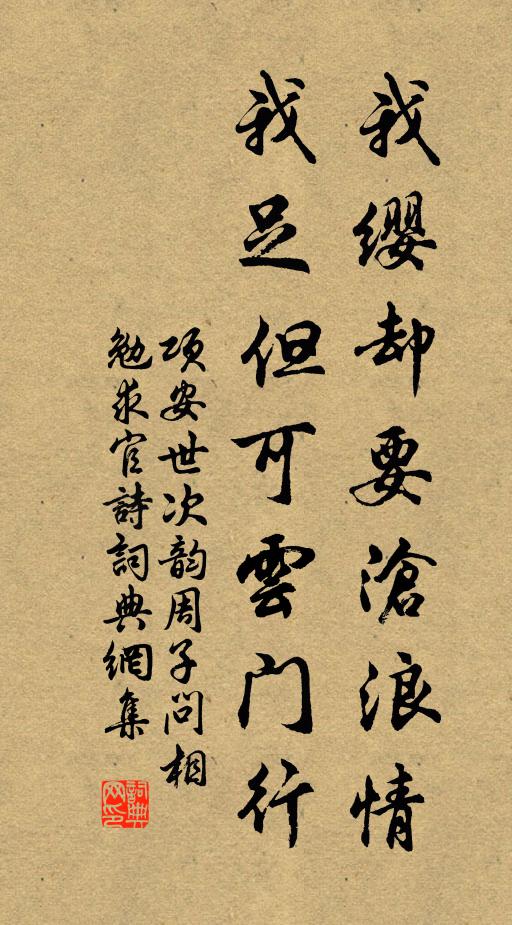 我缨却要滄浪情
我足但可雲门行
项安世次韵周子问相
勉求官詩詞典網集
詞典网印